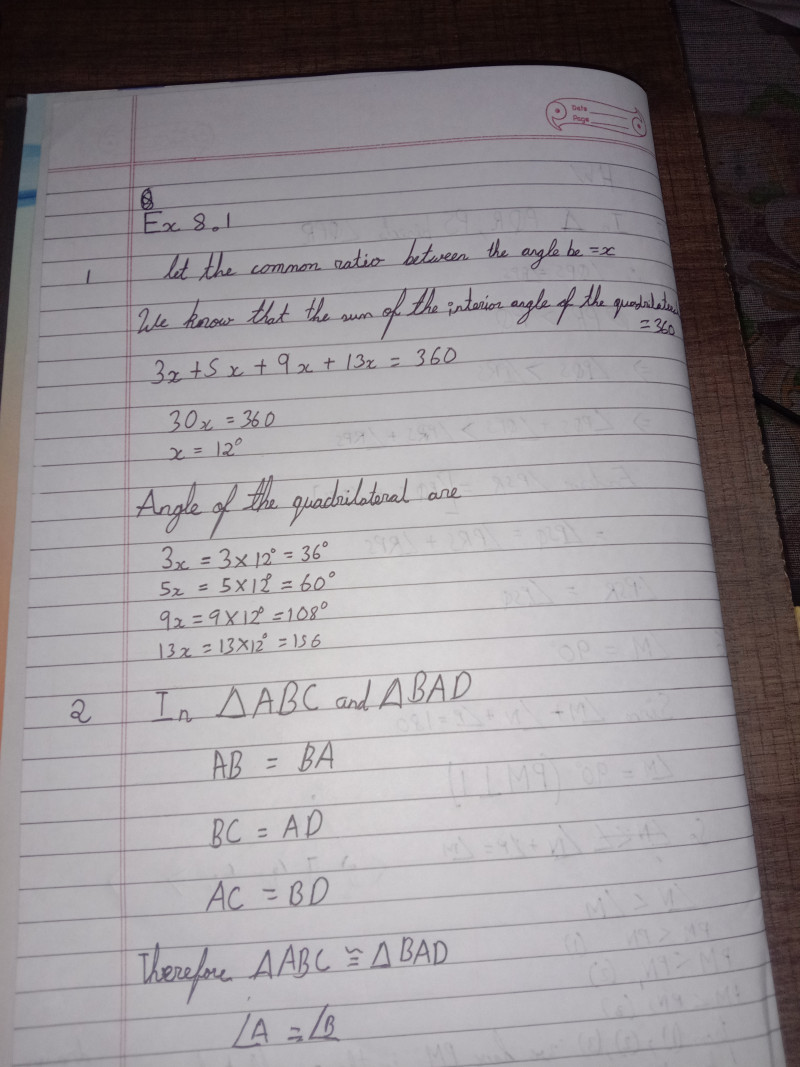 Date
Page
Ex 8.1
1 let the common ratio between the angle be = x
We know that the sum of the interior angle of the quadrilateral
= 360
3x + 5x + 9x + 13x = 360
30x = 360
x = 12°
Angle of the quadrilateral are
3x = 3 × 12° = 36°
5x = 5 × 12° = 60°
9x = 9 × 12° = 108°
13x = 13 × 12° = 156
2 In ΔABC and ΔBAD
AB = BA
BC = AD
AC = BD
Therefore ΔABC ≅ ΔBAD
∠A = ∠B